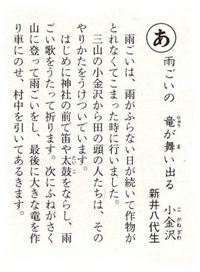 あ
雨ごいの 竜が舞い出る 小金沢
りゅう ま こがねざわ
新井八代生
雨ごいは、雨がふらない日が続いて作物が
とれなくてこまった時に行いました。
三山の小金沢から田の頭の人たちは、その
やりかたをうけついています。
はじめに神社の前で笛や太鼓をならし、雨
たいこ
ごい歌をうたって祈ります。次にふねがさく
山に登って雨ごいをし、最後に大きな竜を作
り車にのせ、村中を引いてあるきます。